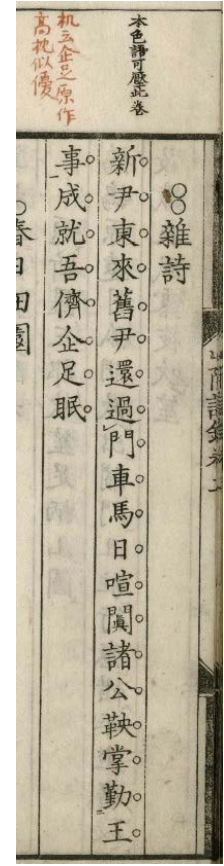 本色語可壓此卷
机云企足原作
高枕似優
雜詩
新尹東來舊尹還過門車馬日喧闐諸公鞅掌勤王
事成就吾儕企足眠
春日田園